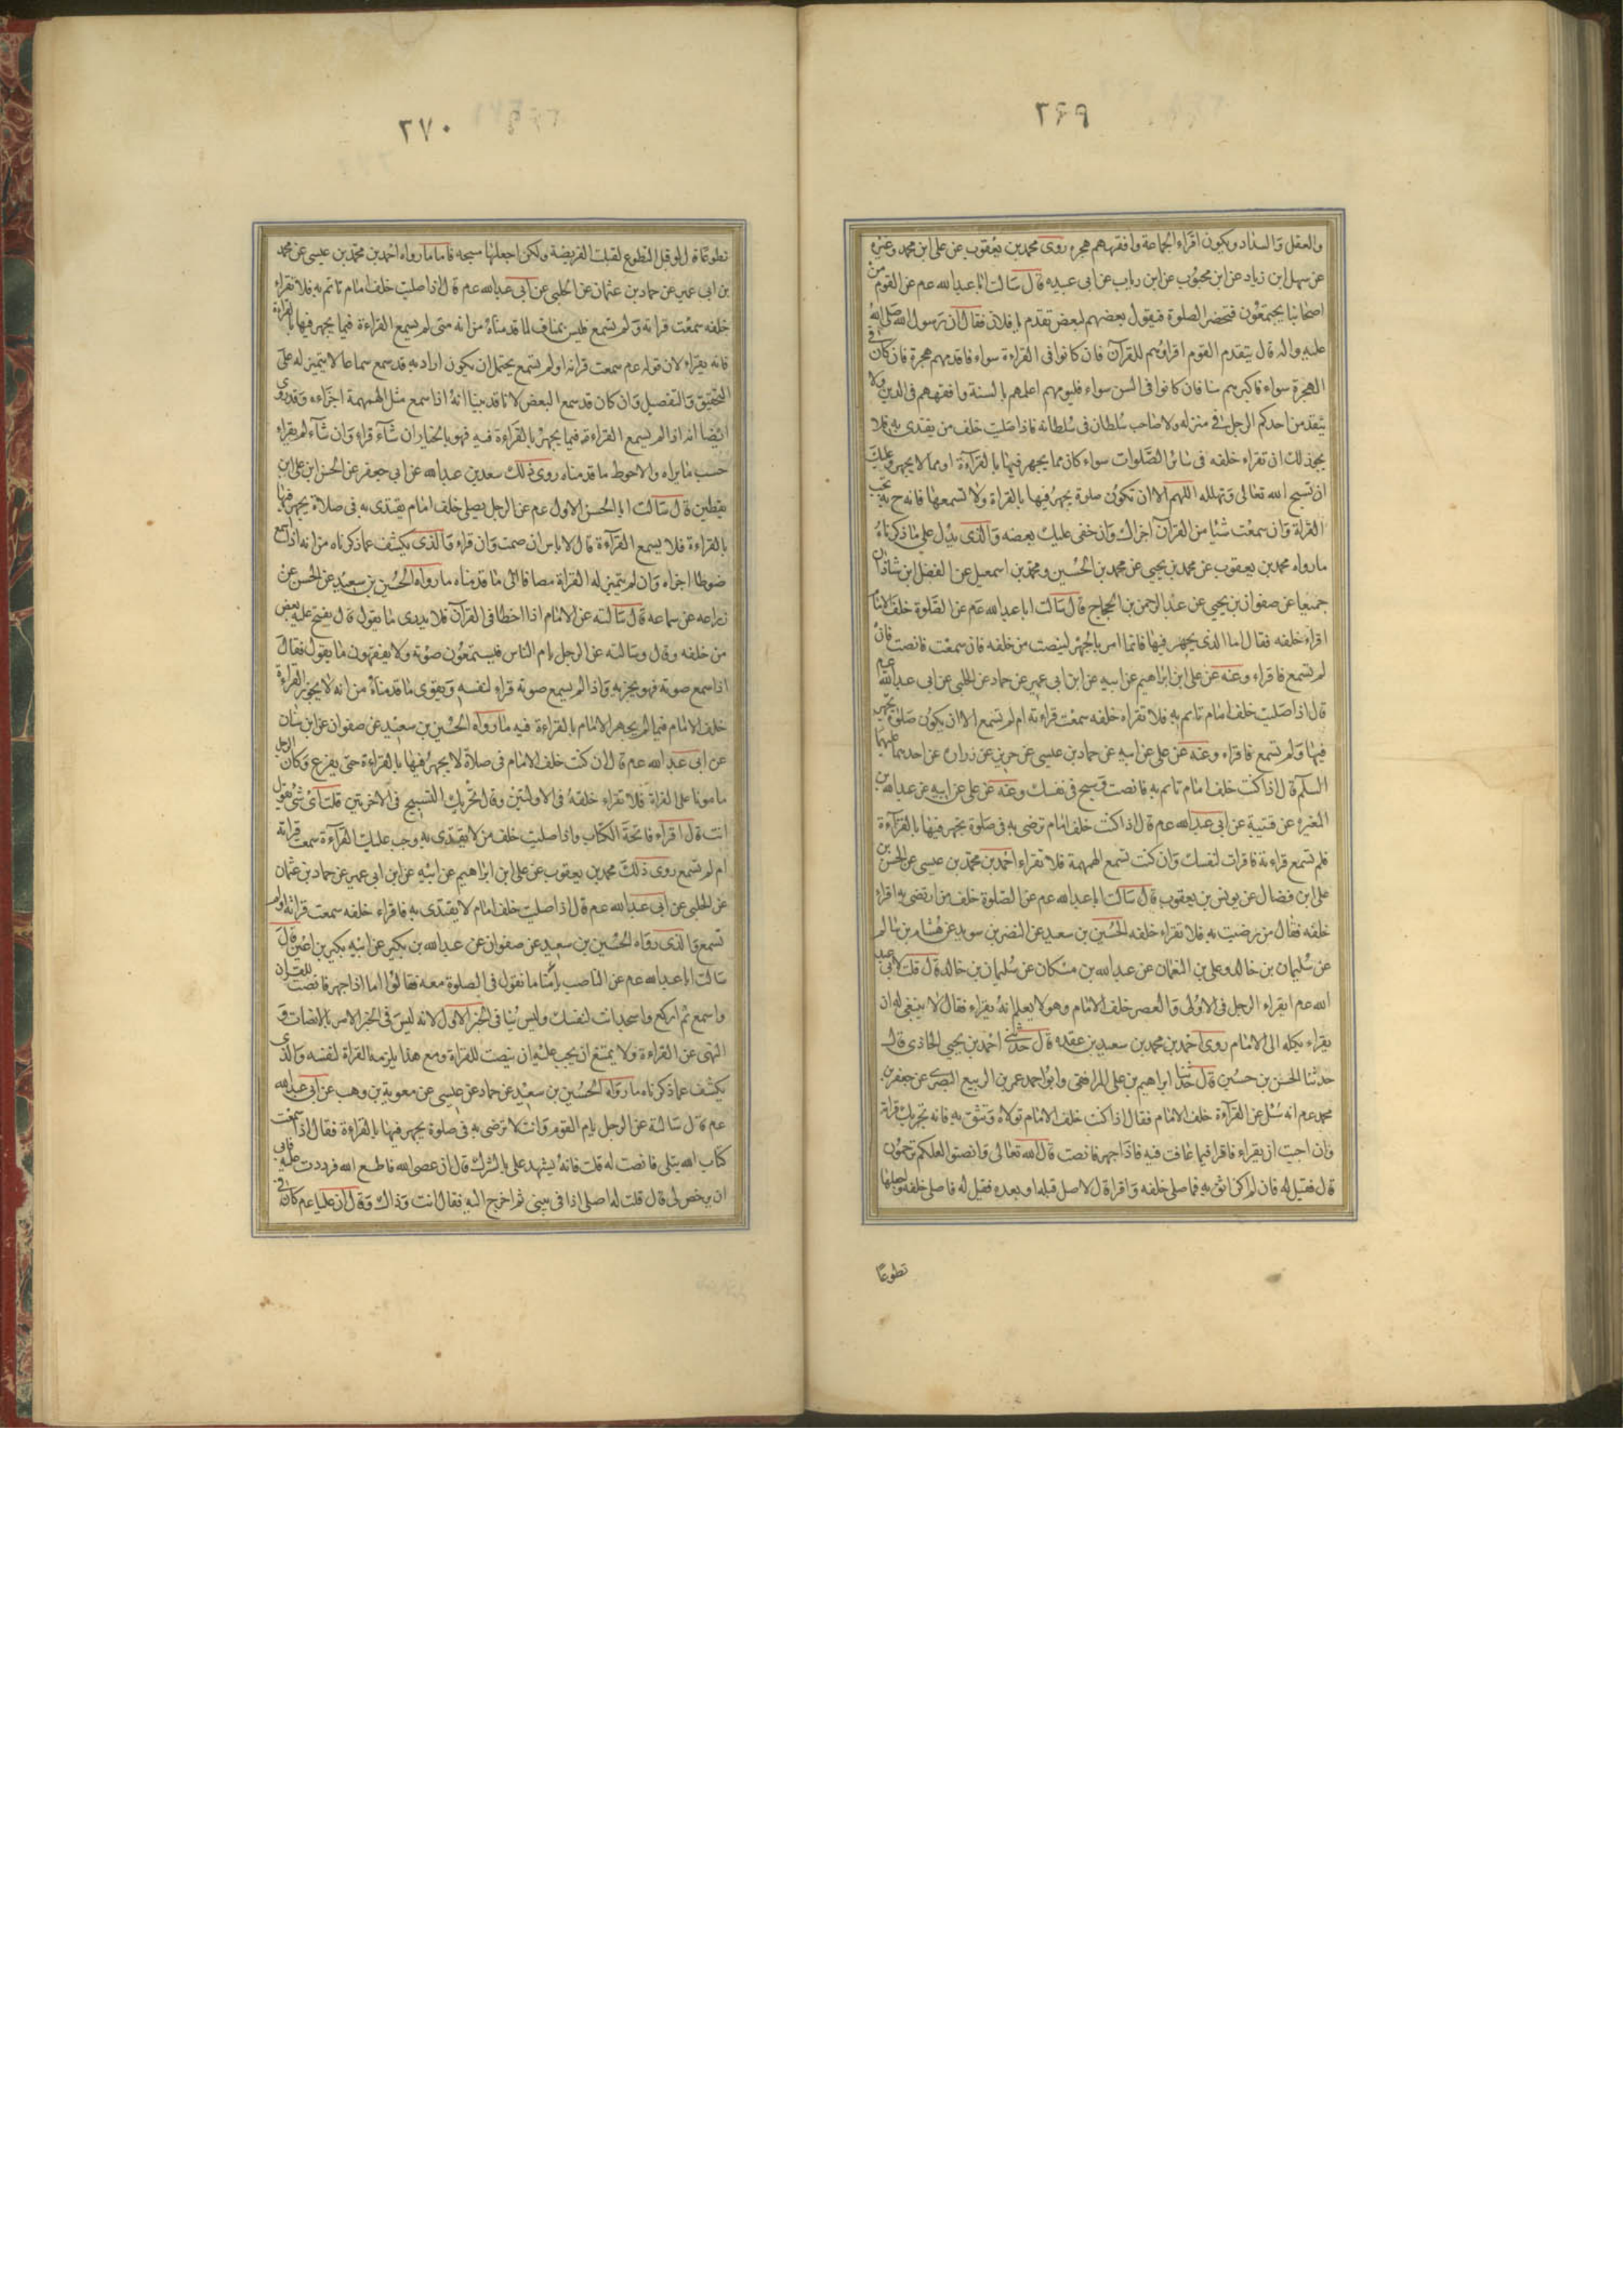 ٢٦٩
والعقل والسداد ويكون اقراء الجماعة وافقههم هجره روى محمد بن يعقوب عن على ابن محمد وغيره
عن سهل ابن زياد عن ابن محبوب عن ابن رياب عن ابى عبيده قال سالت ابا عبد الله عم عن القوم من
اصحابنا يجتمعون فتحضر الصلوة فيقول بعضهم لبعض تقدم يا فلان فقال ان رسول الله صلى الله
عليه واله قال يتقدم القوم اقراؤهم للقرآن فان كانوا فى القراءة سواء فاقدمهم هجرة فان كان فى
الهجرة سواء فاكبرهم سنا فان كانوا فى السن سواء فليومهم اعلمهم بالسنة وافقههم فى الدين ولا
يتقدمن احدكم الرجل فى منزله ولا صاحب سلطان فى سلطانه فاذا صليت خلف من يقتدى به فلا
يجوز لك ان تقراء خلفه فى سائر الصلوات سواء كان مما يجهر فيها بالقراءة او مما لا يجهر وعليك
ان تسبح الله تعالى وتهلله اللهم الا ان تكون صلوة يجهر فيها بالقراة ولا تسمعها فانه ح يجب
القراة وان سمعت شيئا من القرآن اجزاك وان خفى عليك بعضه والذى يدل على ما ذكرناه
ما رواه محمد بن يعقوب عن محمد بن يحيى عن محمد بن الحسين ومحمد بن اسمعيل عن الفضل ابن شاذان
جميعا عن صفوان بن يحيى عن عبد الرحمن بن الحجاج قال سالت ابا عبد الله عم عن الصلوة خلف الامام
اقراء خلفه فقال اما الذى يجهر فيها فانما امر بالجهر لينصت من خلفه فان سمعت فانصت فان
لم تسمع فاقراء وعنه عن على ابن ابراهيم عن ابيه عن ابن ابى عمير عن حماد عن الحلبى عن ابى عبد الله عم
قال اذا صليت خلف امام تاتم به فلا تقراء خلفه سمعت قراءته ام لم تسمع الا ان يكون صلوة يجهر
فيها ولم تسمع فاقراء وعنه عن على عن ابيه عن حماد بن عيسى عن حريز عن زرارة عن احدهما عليهما
السلم قال اذا كنت خلف امام تاتم به فانصت وسبح فى نفسك وعنه عن على عن ابيه عن عبد الله بن
المغيره عن قتيبة عن ابى عبد الله عم قال اذا كنت خلف امام ترضى به فى صلوة يجهر فيها بالقراءة
فلم تسمع قراءته فاقرات لنفسك وان كنت تسمع الهمهمة فلا تقراء احمد بن محمد بن عيسى عن الحسن بن
على ابن فضال عن يونس بن يعقوب قال سالت ابا عبد الله عم عن الصلوة خلف من ارتضى به اقراء
خلفه فقال من رضيت به فلا تقراء خلفه الحسين بن سعيد عن النضر بن سويد عن هشام بن سالم
عن سليمان بن خالد وعلى بن النعمان عن عبد الله بن مسكان عن سليمان بن خالد قال قلت لابى عبد
الله عم ايقراء الرجل فى الاولى والعصر خلف الامام وهو لا يعلم انه يقراء فقال لا ينبغى له ان
يقراء يكله الى الامام روى احمد بن محمد بن سعيد بن عقده قال حدثنى احمد بن يحيى الحاذى قال
حدثنا الحسن بن حسين قال حدثنا ابراهيم بن على المرافقى وابو احمد عمر بن الربيع البصرى عن جعفر بن
محمد عم انه سئل عن القراءة خلف الامام فقال اذا كنت خلف الامام تولاه وتثق به فانه تجزيك قراة
وان احببت ان يقراء فاقرا فيما تخافت فيه فاذا جهر فانصت قال الله تعالى وانصتوا لعلكم ترحمون
قال فقيل له فان لم اكن اثق به فاصلى خلفه واقرا قال لا صل قبله او بعده فقيل له فاصلى خلفه واجعلها
تطوعًا
٢٧٠
تطوعًا قال لو قبل التطوع لقبلت الفريضة ولكن اجعلها سبحه فاما ما رواه احمد بن محمد بن عيسى عن محمد
بن ابى عمير عن حماد بن عثمان عن الحلبى عن ابى عبد الله عم قال اذا صليت خلف امام تاتم به فلا تقراء
خلفه سمعت قراته ولم تسمع فليس بمناف لما قدمناه من انه متى لم يسمع القراءة فيما يجهر فيها بالقراءة
فانه يقراء لان قوله عم سمعت قراته او لم تسمع يحتمل ان يكون اراد به قد سمع سماعا لا يتميز له على
التحقيق والتفصيل وان كان قد سمع البعض لانا قد بينا انه اذا سمع مثل الهمهمة اجزاءه وقد روى
ايضا انه اذا لم يسمع القراءة فيما يجهر بالقراءة فيه فهو بالخيار ان شاء قراء وان شاء لم يقراء
حسب ما يراه والاحوط ما قدمناه روى ذلك سعد بن عبد الله عن ابى جعفر عن الحسن ابن على ابن
يقطين قال سالت ابا الحسن الاول عم عن الرجل يصلى خلف امام يقتدى به فى صلاة يجهر فيها
بالقراءة فلا يسمع القراءة قال لا باس ان صمت وان قراء والذى يكشف عما ذكرناه من انه اذا سمع
صوتا اجزاء وان لم يتميز له القراة مضافا الى ما قدمناه ما رواه الحسين بن سعيد عن الحسن عن
زراعه عن سماعه قال سالته عن الامام اذا اخطا فى القرآن فلا يدرى ما يقول قال يفتح عليه بعض
من خلفه وقال وسالته عن الرجل يام الناس فيستمعون صوته ولا يفقهون ما يقول فقال
اذا سمع صوته فهو يجزيه واذا لم يسمع صوته قراء لنفسه ويقوى ما قدمناه من انه لا يجوز القراءة
خلف الامام فيما لم يجهر الامام بالقراءة فيه ما رواه الحسين بن سعيد عن صفوان عن ابن سنان
عن ابى عبد الله عم قال ان كنت خلف الامام فى صلاة لا يجهر فيها بالقراءة حتى يفزع وكان الرجل
مامونا على القراة فلا تقراء خلفه فى الاولتين وقال تجزيك التسبيح فى الاخرتين قلت اى شئ تقول
انت قال اقراء فاتحة الكتاب واذا صليت خلف من لا يقتدى به وجب عليك القراءة سمعت قراته
ام لم تسمع روى ذلك محمد بن يعقوب عن على ابن ابراهيم عن ابيه عن ابن ابى عمير عن حماد بن عثمان
عن الحلبى عن ابى عبد الله عم قال اذا صليت خلف امام لا يقتدى به فاقراء خلفه سمعت قراته او لم
تسمع والذى رواه الحسين بن سعيد عن صفوان عن عبد الله بن بكير عن ابيه بكير بن اعين قال
سالت ابا عبد الله عم عن الناصب يأمنا ما نقول فى الصلوة معه فقالوا اما اذا جهر فانصت للقران
واسمع ثم اركع واسجد انت لنفسك وليس ينافى الخبر الاول لانه ليس فى الخبر الامر بالانصات و
النهى عن القراءة ولا يمتنع ان يجب عليه ان ينصت للقراة ومع هذا يلزمه القراة لنفسه والذى
يكشف عما ذكرناه ما رواه الحسين بن سعيد عن حماد عن عيسى عن معوية بن وهب عن ابى عبد الله
عم قال سالته عن الرجل يام القوم وانت لا ترضى به فى صلوة يجهر فيها بالقراءة فقال اذا سمعت
كتاب الله يتلى فانصت له قلت فانه يشهد على بالشرك قال ان عصى الله فاطع الله فرددت عليه فابى
ان يرخص لى قال قلت له اصلى اذا فى بيتى ثم اخرج اليه فقال انت وذاك وقال ان عليا عم كان فى